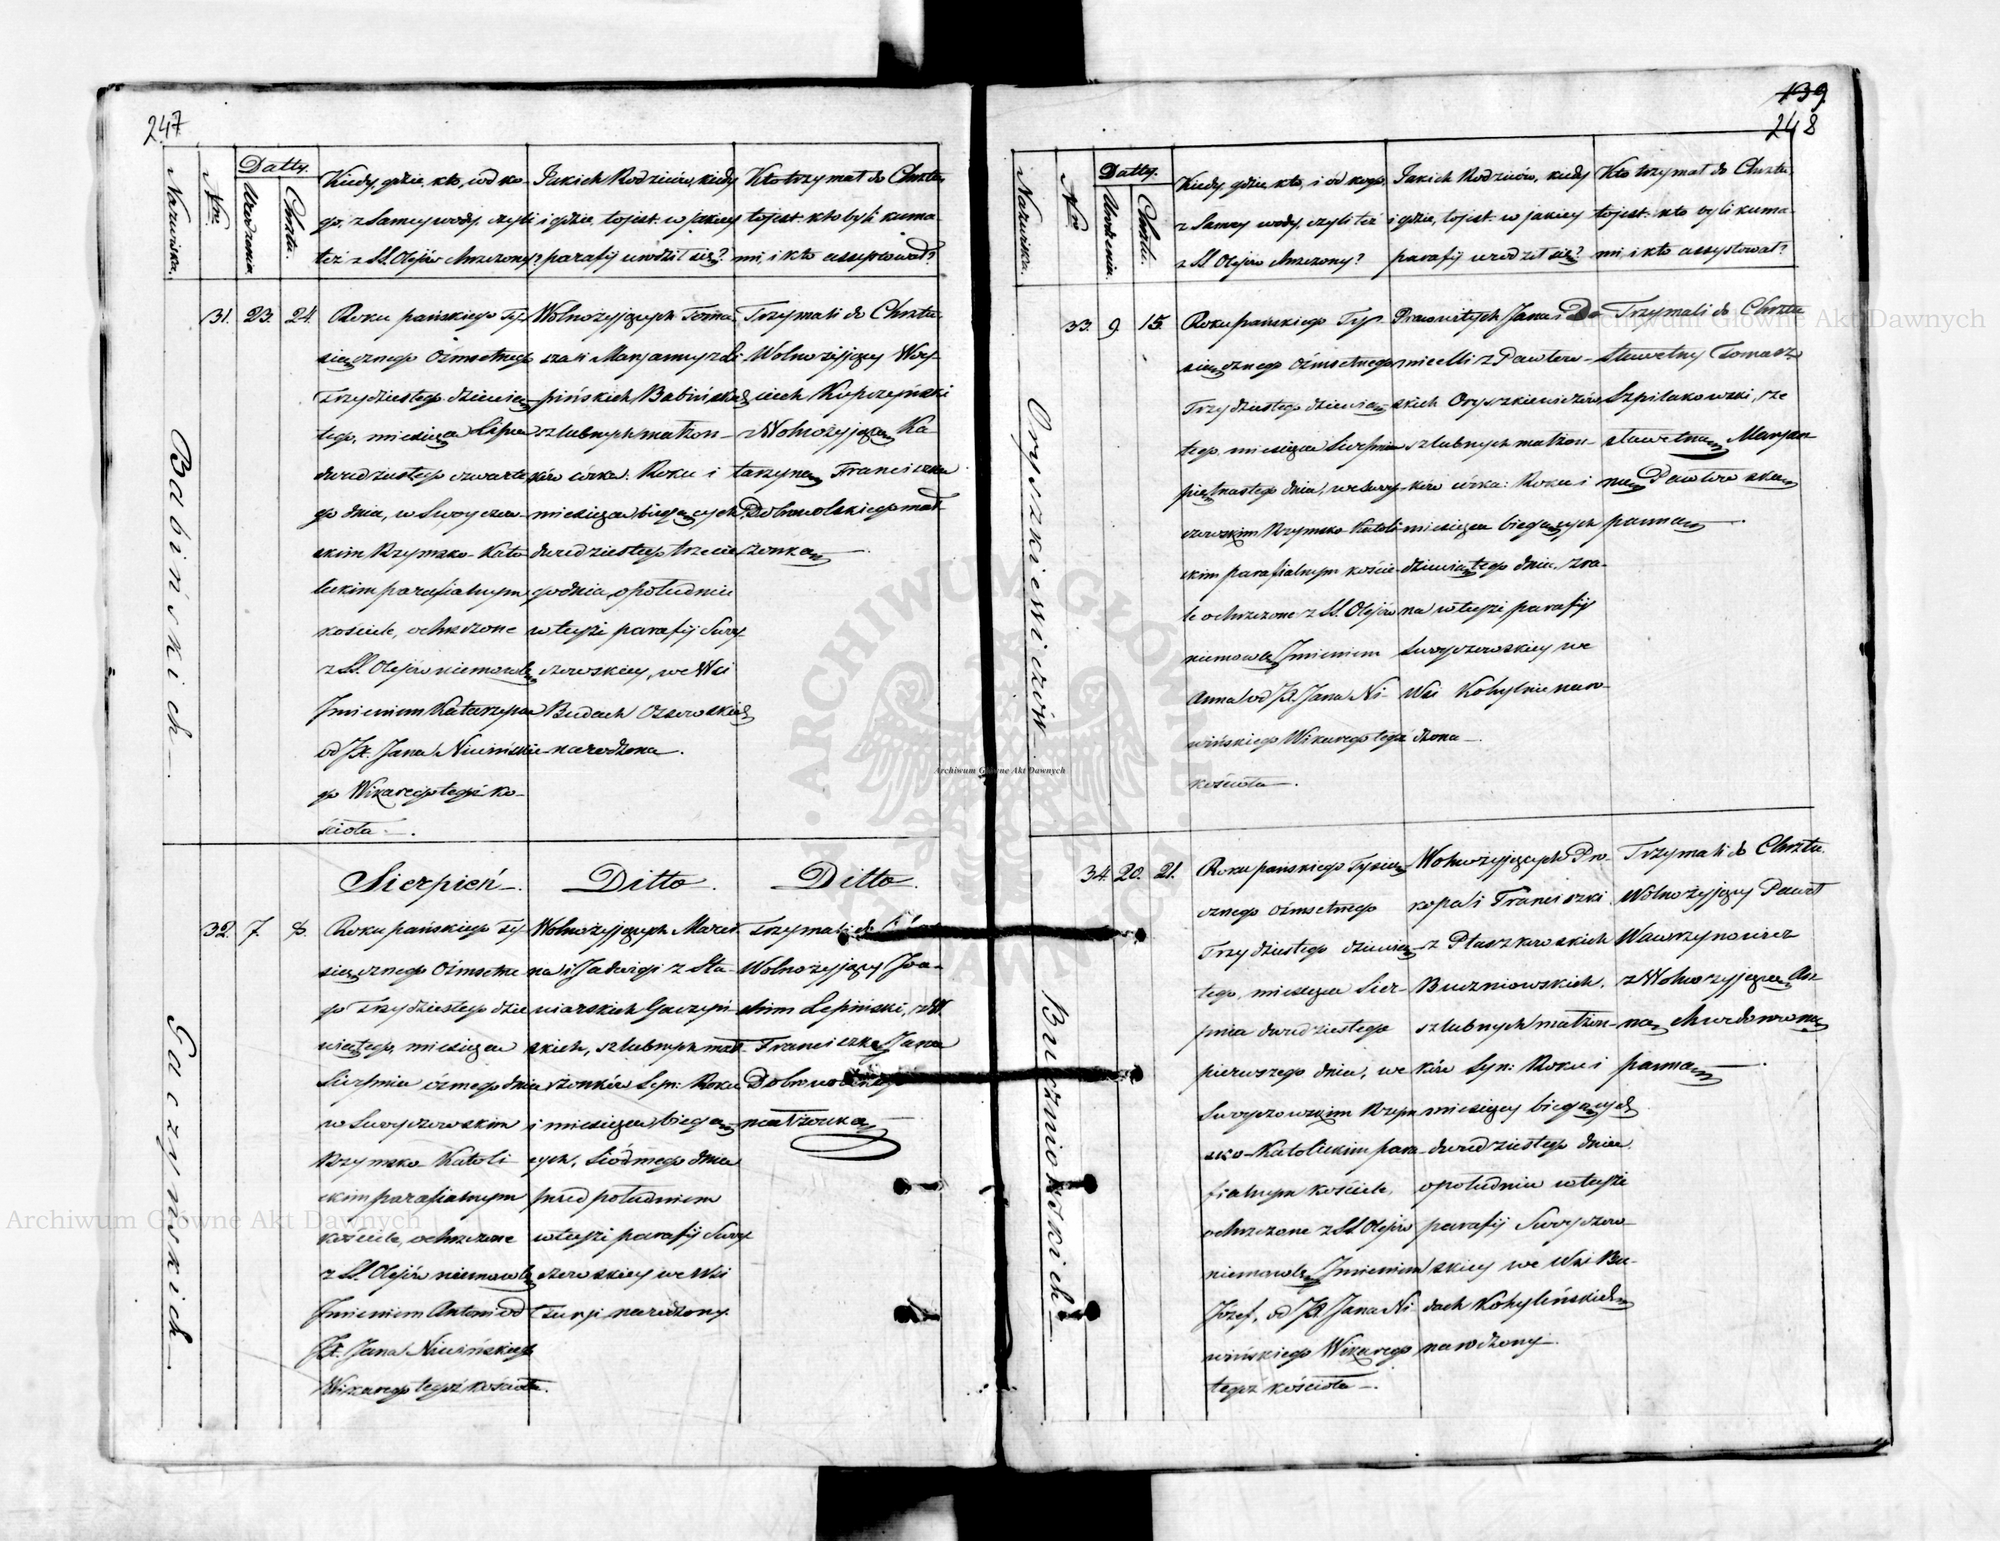 247
Nazwiska.
Nro
Datty.
Urodzenia
Chrztu.
Kiedy, gdzie, kto, i od ko-
go, z Samey wody, czyli
też z SS. Olejów chrzczony?
Jakich Rodziców, kiedy
i gdzie, to jest: w jakiey
parafij urodził się?
Kto trzymał do Chrztu,
to jest: kto byli kuma-
mi, i kto assystował?
Babińskich.
31. 23. 24.
Roku pańskiego Ty-
siącznego Óśmsetnego
Trzydziestego dziewią-
tego, miesiąca Lipca
dwudziestego czwarte
go dnia, w Swoyczow-
skim Rzymsko-Kato
lickim parafialnym
kościele, ochrzczone
z SS. Olejów niemowlę
Jmieniem Katarzyna
od JX. Jana Niwińskie
go Wikarego tegoż ko-
ścioła.
Wolnożyjących Toma
sza i Maryanny z Li
pińskich Babińskich
szlubnych małżon-
ków córka: Roku i
miesiąca biegących
dwudziestego trzecie
go dnia, o południu
w tuteyszey parafij Swoy
czowskiey, we Wsi
Budach Ossowskich
narodzona.
Trzymali do Chrztu
Wolnożyjący Woy-
ciech Kupczyński
z Wolnożyjącą Ka
tarzyną Franciszka
Dobrowolskiego mał-
żonką.
Gaczyńskich.
Sierpień.
Ditto.
Ditto.
32. 7. 8.
Roku pańskiego Ty-
siącznego Óśmsetne
go Trzydziestego dzie
wiątego, miesiąca
Sierpnia ósmego dnia
w Swoyczowskim
Rzymsko-Katoli
ckim parafialnym
kościele, ochrzczone
z SS. Olejów niemowlę
Jmieniem Antoni od
JX. Jana Niwińskiego
Wikarego tegoż kościoła.
Wolnożyjących Marci
na i Jadwigi z Sta-
niarskich Gaczyń-
skich, szlubnych mał-
żonków Syn: Roku
i miesiąca biegą-
cych, siódmego dnia
przed południem
w tuteyszey parafij Swoy
czowskiey we Wsi
narodzony.
Trzymali do
Wolnożyjący Joa-
chim Lepiński, z W.
Franciszką Jana
małżonką
139
248
Nazwiska.
Nro
Datty.
Urodzenia.
Chrztu.
Kiedy, gdzie, kto, i od kogo,
z Samey wody, czyli też
z SS. Olejów chrzczony?
Jakich Rodziców, kiedy
i gdzie, to jest: w jakiey
parafij urodził się?
Kto trzymał do Chrztu,
to jest: kto byli kuma-
mi, i kto assystował?
Oryszkiewiczów.
33. 9. 15.
Roku pańskiego Ty-
siącznego Óśmsetnego
Trzydziestego dziewią-
tego, miesiąca Sierpnia
piętnastego dnia, we Swoy-
czowskim Rzymsko-Katoli-
ckim parafialnym kościele
ochrzczone z SS. Olejów
niemowlę Jmieniem
Anna od JX. Jana Ni-
wińskiego Wikarego tegoż
kościoła.
Pracowitych Jana i Do-
micelli z Pawłow-
skich Oryszkiewiczów
szlubnych małżon-
ków córka: Roku i
miesiąca biegących
dziewiątego dnia, z ra-
na w tuteyszey parafij
Swoyczowskiey we
Wsi Kohylnie naro-
dzona.
Trzymali do Chrztu
Sławetny Tomasz
Szpilakowski, ze
sławetną Maryan-
ną Pawłowską
panną.
Buczniowskich.
34. 20. 21.
Roku pańskiego Tysią-
cznego Óśmsetnego
Trzydziestego dziewią-
tego, miesiąca Sier-
pnia dwudziestego
pierwszego dnia, we
Swoyczowskim Rzym
sko-Katolickim para-
fialnym kościele,
ochrzczone z SS. Olejów
niemowlę Jmieniem
Józef, od JX. Jana Ni-
wińskiego Wikarego
tegoż kościoła.
Wolnożyjących Pro-
kopa i Franciszki
z Ptaszkowskich
Buczniowskich,
szlubnych małżon-
ków Syn: Roku i
miesiąca biegących
dwudziestego dnia
o południu w tuteyszey
parafij Swoyczow-
skiey we Wsi Bu-
dach Kohylińskich
narodzony.
Trzymali do Chrztu
Wolnożyjący Paweł
Wawrzynowicz
z Wolnożyjącą An-
ną
panną.
Archiwum Główne Akt Dawnych
Archiwum Główne Akt Dawnych
Archiwum Główne Akt Dawnych